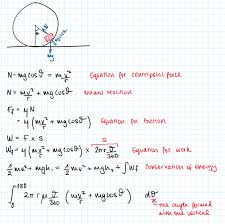 N - mg cosθ = m v²/r Equation for centripetal force
N = m v²/r + mg cosθ normal reaction
F_f = μ N
= μ (m v²/r + mg cosθ) Equation for friction
W = F × s
W_f = μ (m v²/r + mg cosθ) × 2πr θ/360 Equation for work
½ mv² + mgh₁ = ½ mv² + mgh₂ + ∫ W_f Conservation of energy
∫₀¹⁸⁰ 2πr μ θ/360 (m v²/r + mg cosθ) dθ
the angle formed
with the vertical